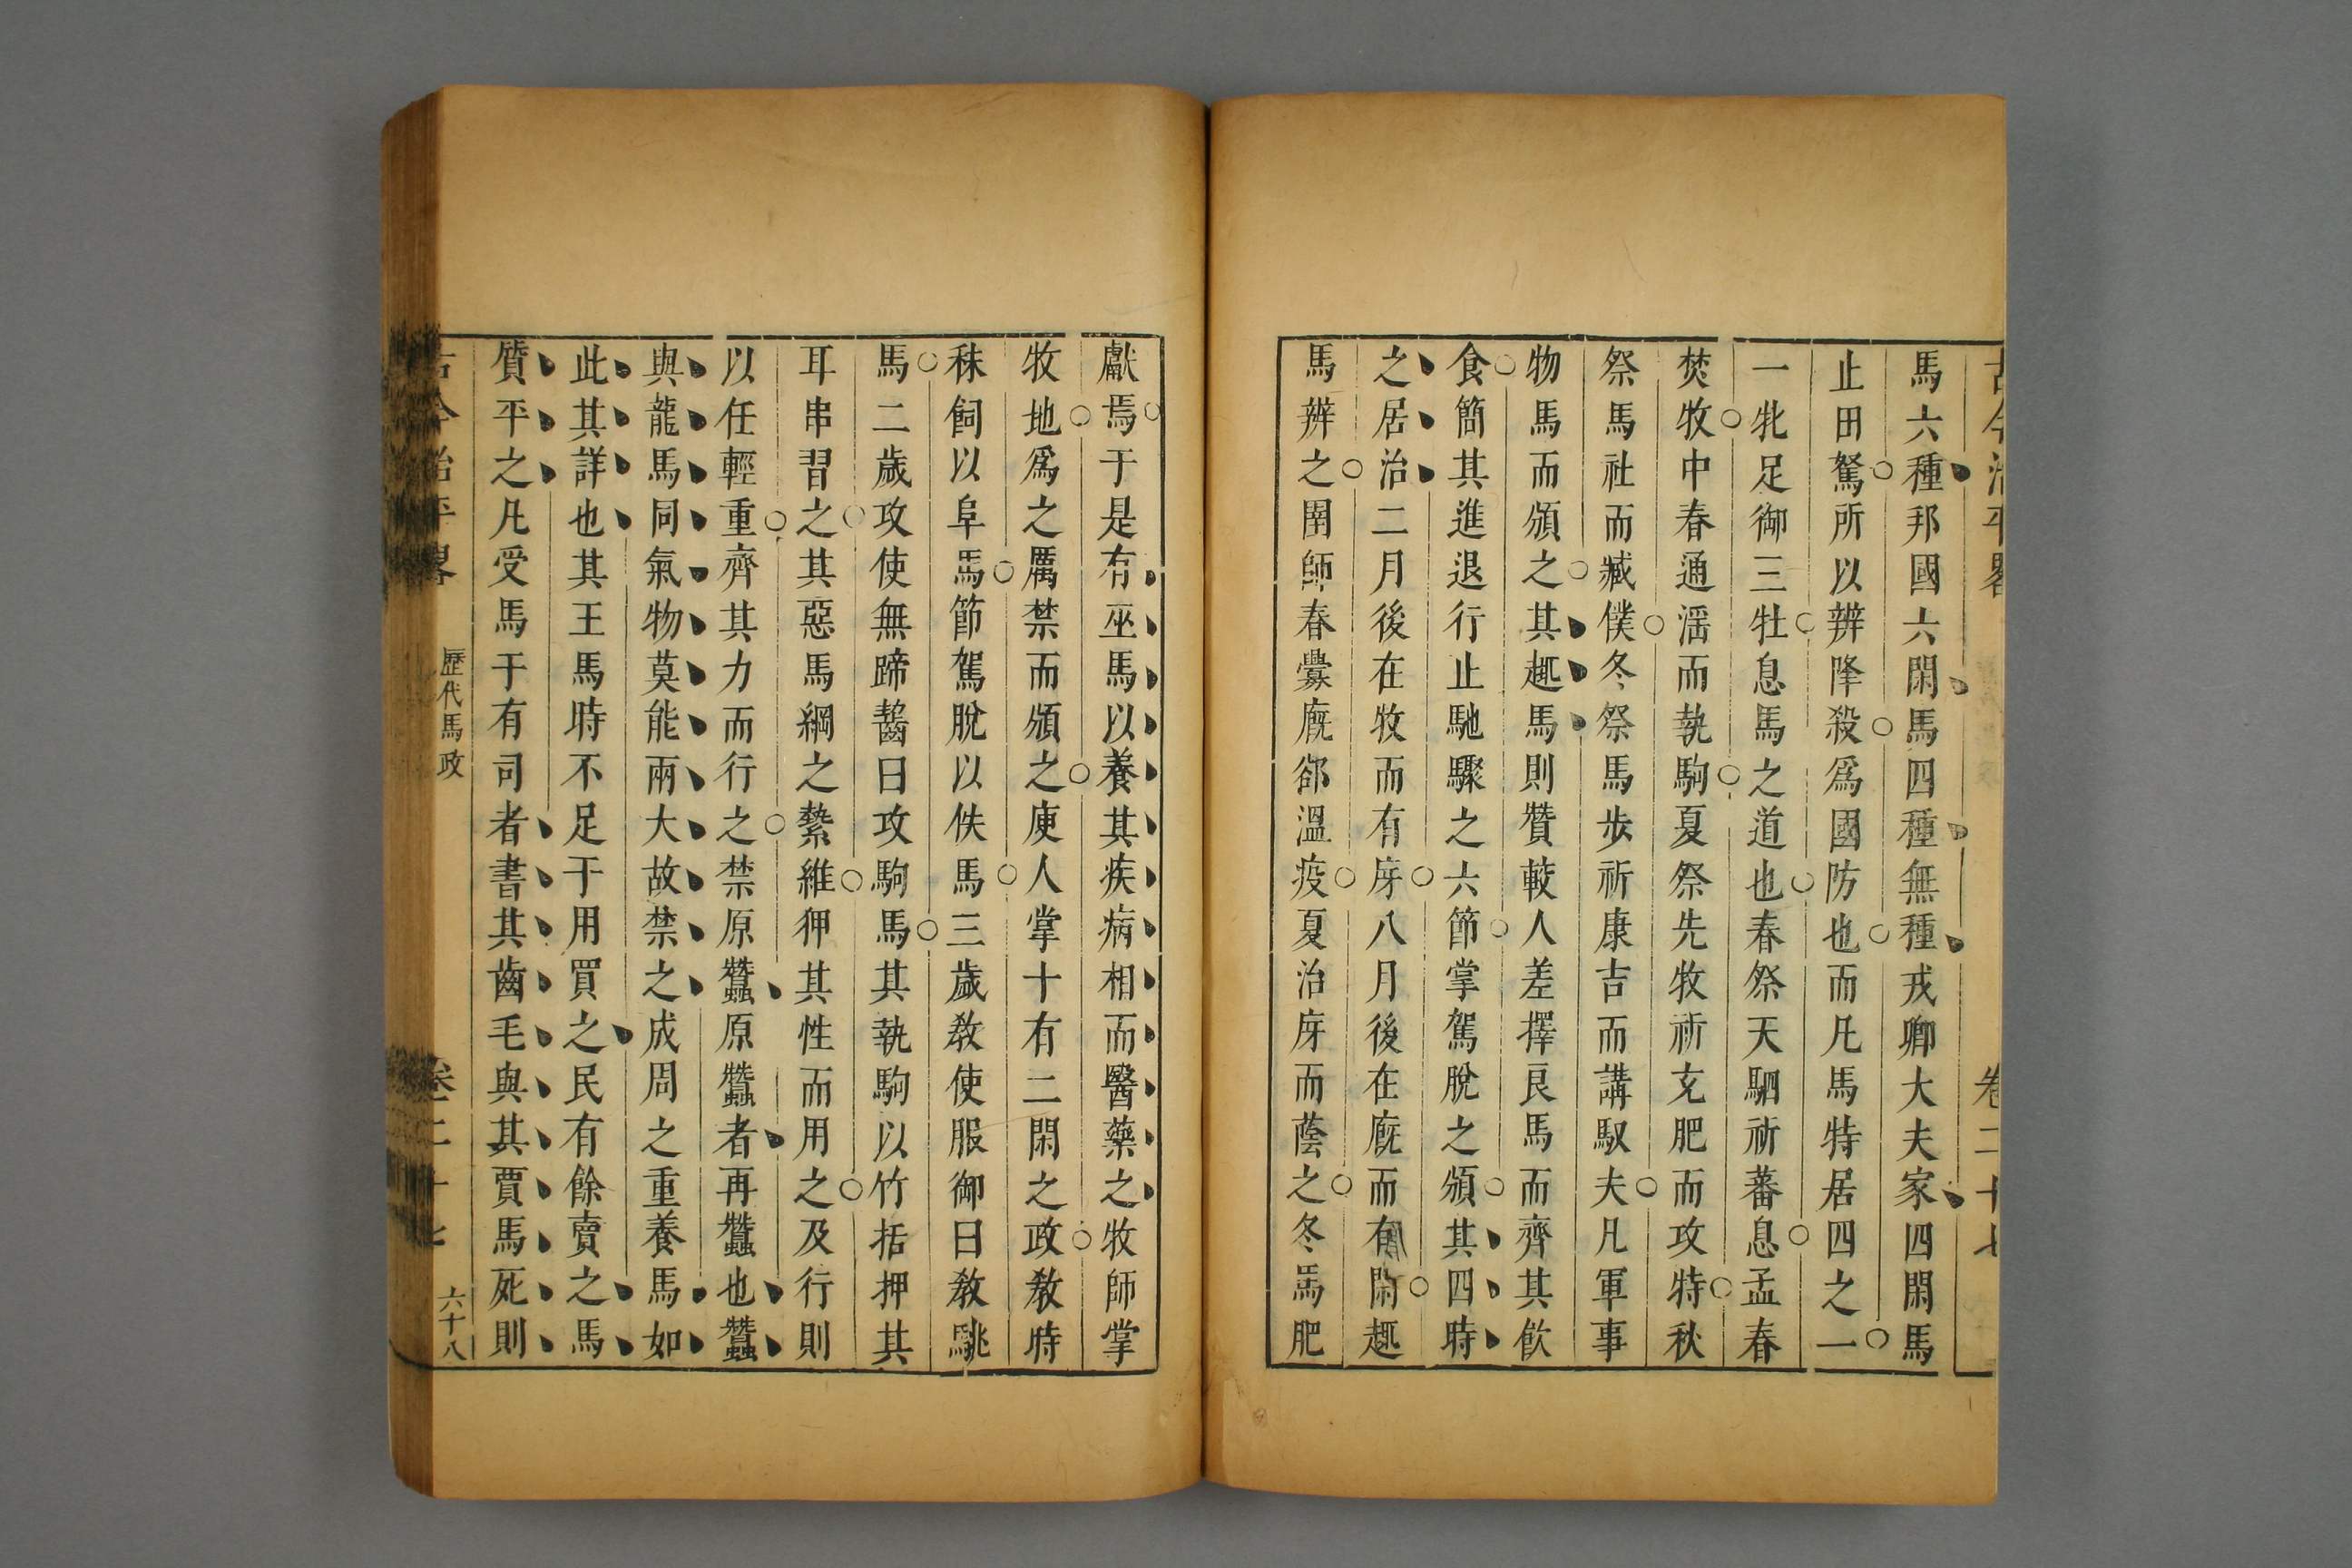 古今治平畧 卷二十七
馬六種邦國六閑馬四種無種戎卿大夫家四閑馬
止田駑所以辨降殺爲國防也而凡馬特居四之一
一牝足御三牡息馬之道也春祭天駟祈蕃息孟春
焚牧中春通滛而執駒夏祭先牧祈充肥而攻特秋
祭馬社而臧僕冬祭馬步祈康吉而講馭夫凡軍事
物馬而頒之其趣馬則贊較人差擇良馬而齊其飲
食簡其進退行止馳驟之六節掌駕脫之頒其四時
之居治二月後在牧而有庌八月後在廐而有閑趣
馬辨之圉師春釁廐郤溫疫夏治庌而蔭之冬馬肥
獻焉于是有巫馬以養其疾病相而醫藥之牧師掌
牧地爲之厲禁而頒之庾人掌十有二閑之政教時
秣飼以阜馬節駕脫以佚馬三歲教使服御曰教駣
馬二歲攻使無蹄齧曰攻駒馬其執駒以竹括押其
耳串習之其惡馬綱之縶維狎其性而用之及行則
以任輕重齊其力而行之禁原蠶原蠶者再蠶也蠶
與龍馬同氣物莫能兩大故禁之成周之重養馬如
此其詳也其王馬時不足于用買之民有餘賣之馬
質平之凡受馬于有司者書其齒毛與其賈馬死則
古今治平畧 歷代馬政 卷二十七 六十八